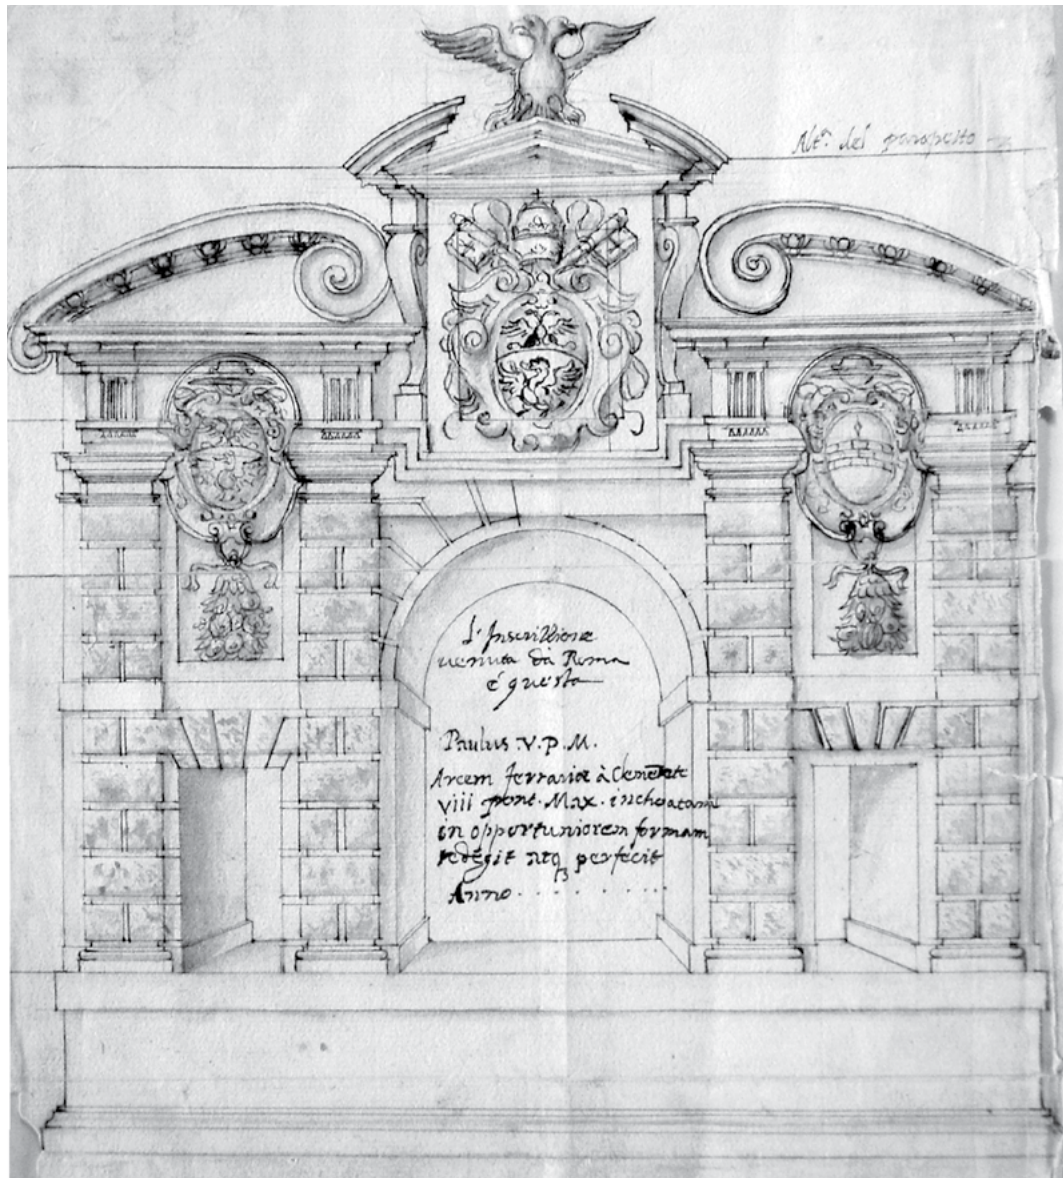 Alt.ª del parapetto
L'Inscrittione
venuta da Roma
é questa
Paulus .V. P. M.
Arcem ferrariæ à Clemēte
viii pont. Max. inchoatam
in opportuniorem formam
redegit atq₃ perfecit
Anno . . . . . . . . .